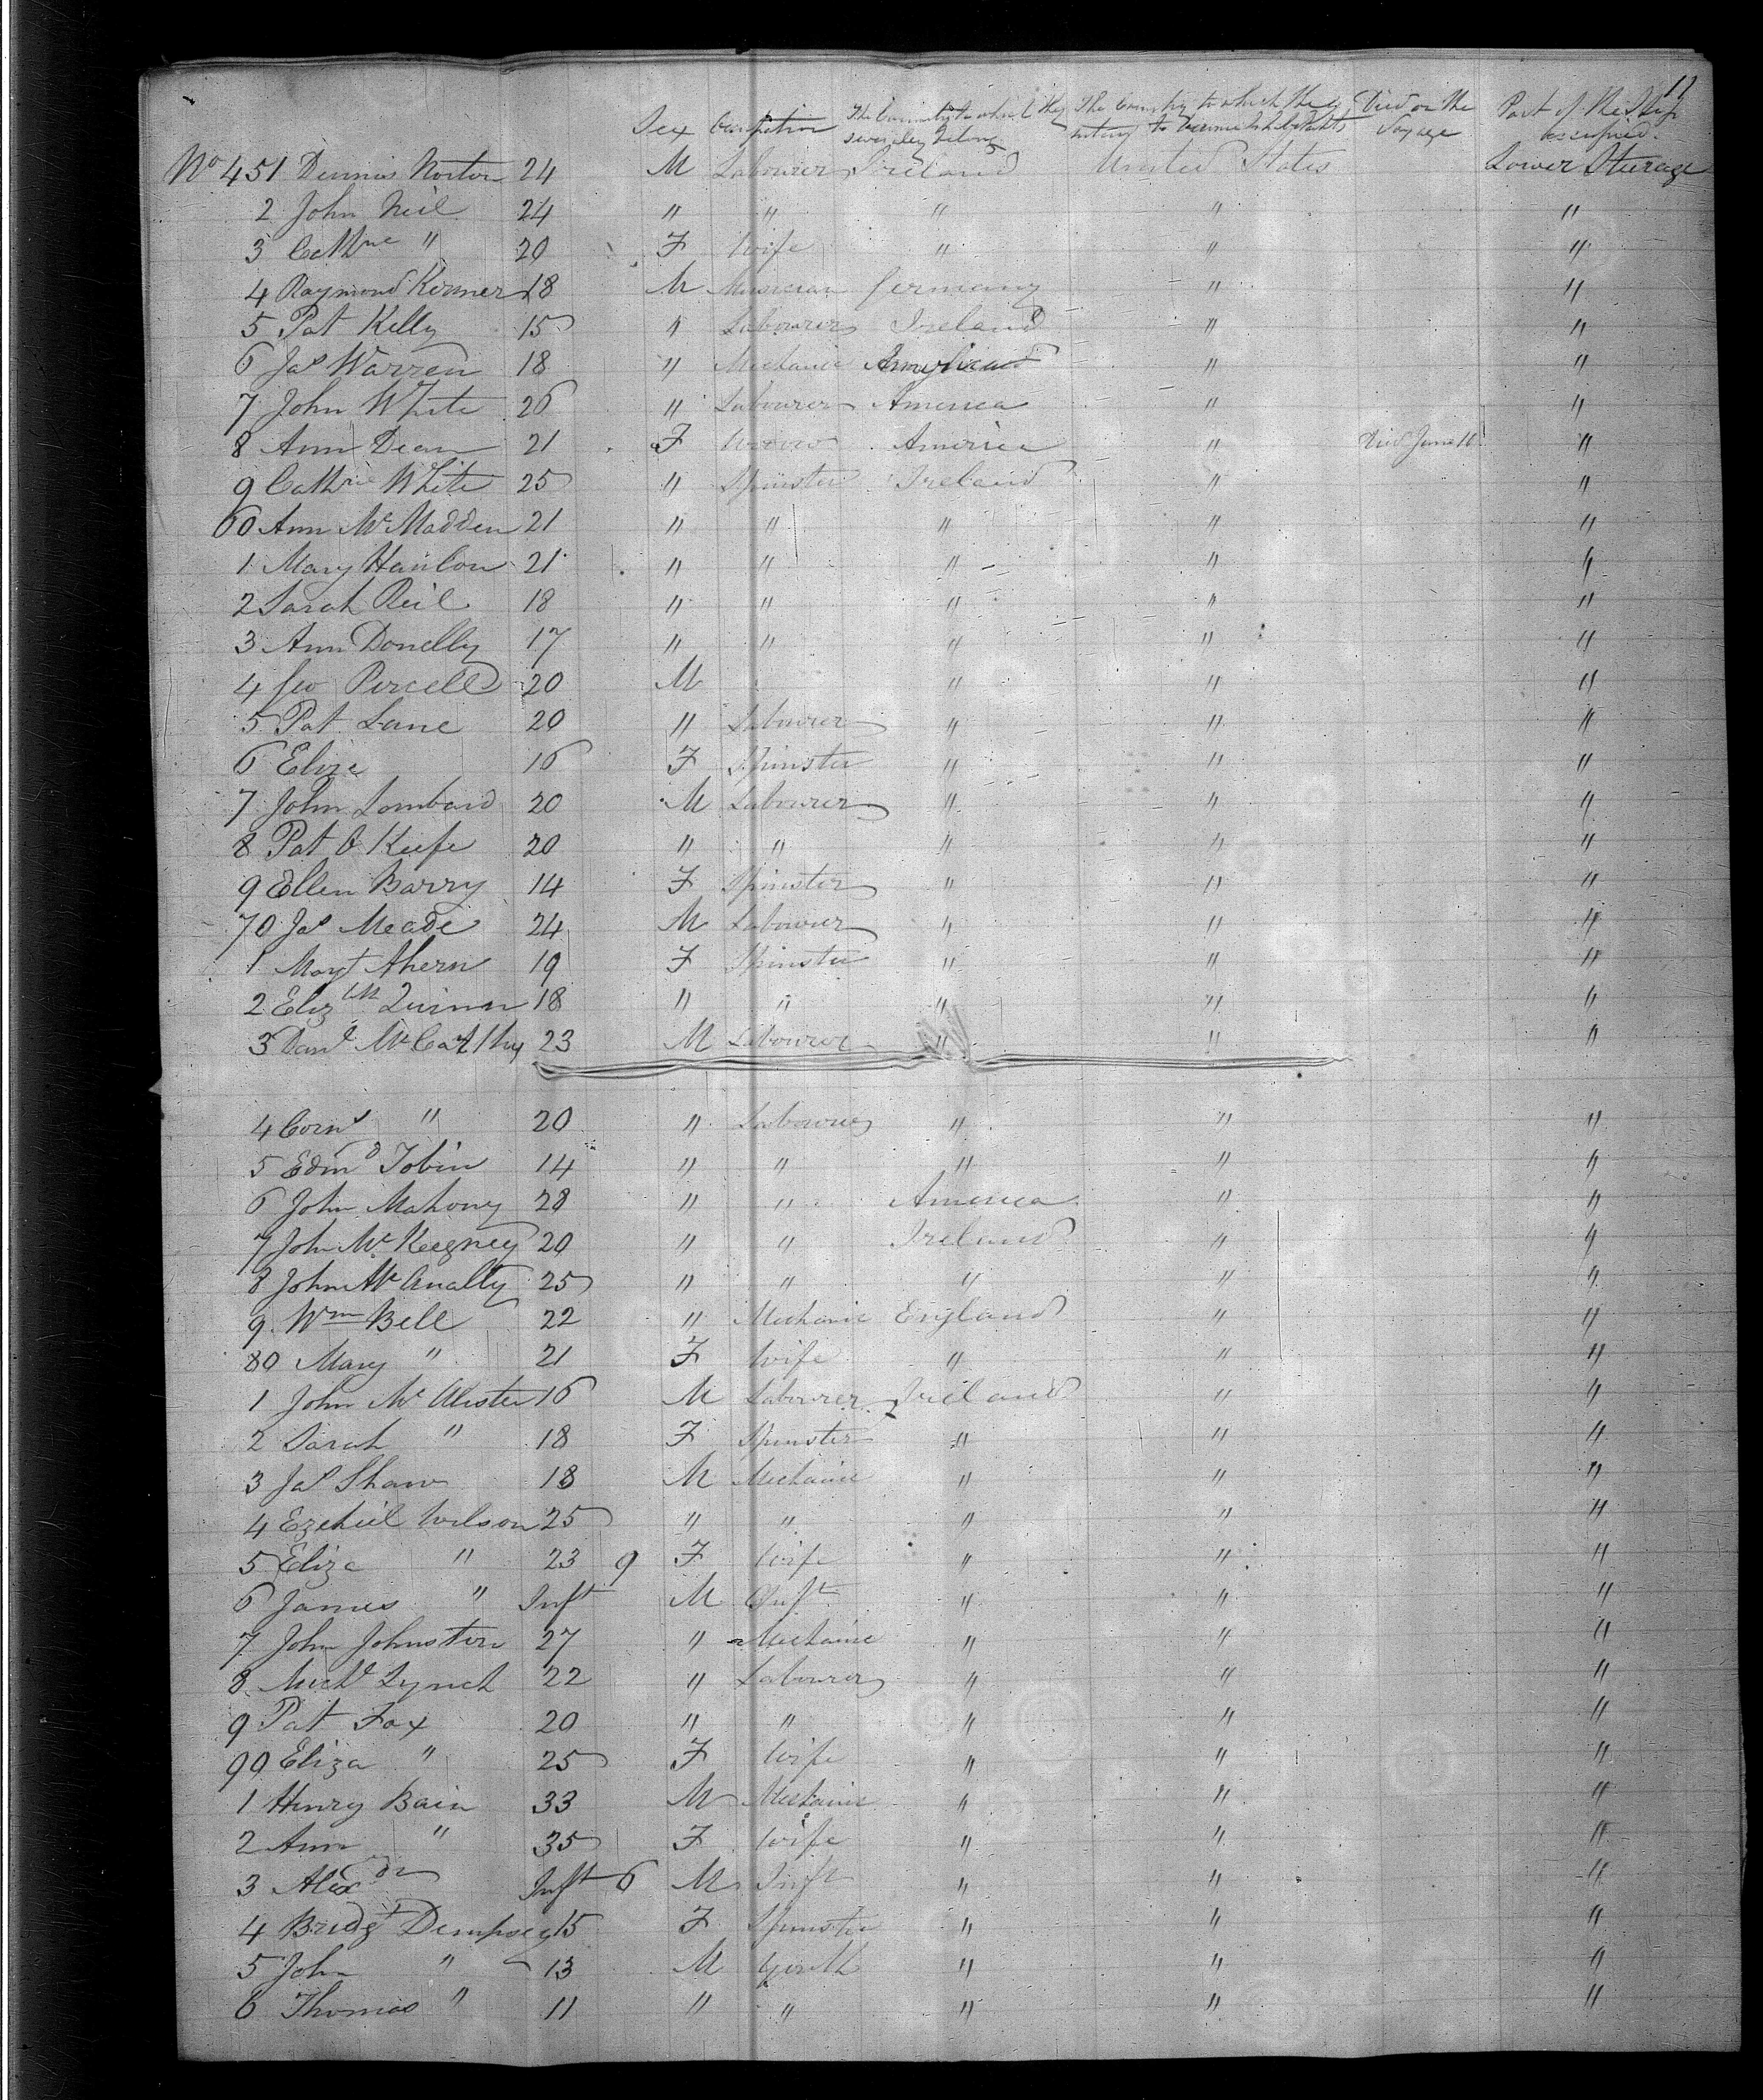 11
Sex Occupation The Country to which they severaley belong The Country to which they intend to become Inhabitants Died on the Voyage Part of the Ship occupied
No 451 Dennis Norton 24 M Labourer Ireland United States Lower Steerage
2 John Neil 24 " " " " "
3 Cathne " 20 F Wife " " "
4 Raymond Kermer 18 M Musician Germany " "
5 Pat Kelly 15 " Labourer Ireland " "
6 Jas Warren 18 " Mechanic America " "
7 John White 26 " Labourer America " "
8 Ann Dean 21 F America " Died June 16 "
9 Cathrie White 25 " Spinster Ireland " "
60 Ann McMadden 21 " " " " "
1 Mary Hanlon 21 " " " " "
2 Sarah Reil 18 " " " " "
3 Ann Donelly 17 " " " " "
4 Geo Percell 20 M " " "
5 Pat Lane 20 " Labourer " " "
6 Eliza 16 F Spinster " " "
7 John Lombard 20 M Labourer " " "
8 Pat O Keefe 20 " " " " "
9 Ellen Barry 14 F Spinster " " "
70 Jas Meade 24 M Labourer " " "
1 Margt Ahern 19 F Spinster " " "
2 Elizth Quinn 18 " " " " "
3 Danl McCarthy 23 M Labourer " " "
4 Corns " 20 " Labourer " " "
5 Edmd Tobin 14 " " " " "
6 John Mahony 28 " " America " "
7 John McKegney 20 " " Ireland " "
8 John McAnalty 25 " " " " "
9 Wm Bell 22 " Mechanic England " "
80 Mary " 21 F Wife " " "
1 John McAlister 16 M Labourer Ireland " "
2 Sarah " 18 F Spinster " " "
3 Jas Shaw 18 M Mechanic " " "
4 Ezekiel Wilson 25 " " " " "
5 Eliza " 23 9 F Wife " " "
6 James " Inft M Inft " " "
7 John Johnston 27 " Mechanic " " "
8 Michl Lynch 22 " Labourer " " "
9 Pat Fox 20 " " " " "
90 Eliza " 25 F Wife " " "
1 Henry Bain 33 M Mechanic " " "
2 Ann " 35 F Wife " " "
3 Alexdr Inft 6 M Inft " " "
4 Bridgt Dempsey 15 F Spinster " " "
5 John " 13 M Youth " " "
6 Thomas " 11 " " " " "